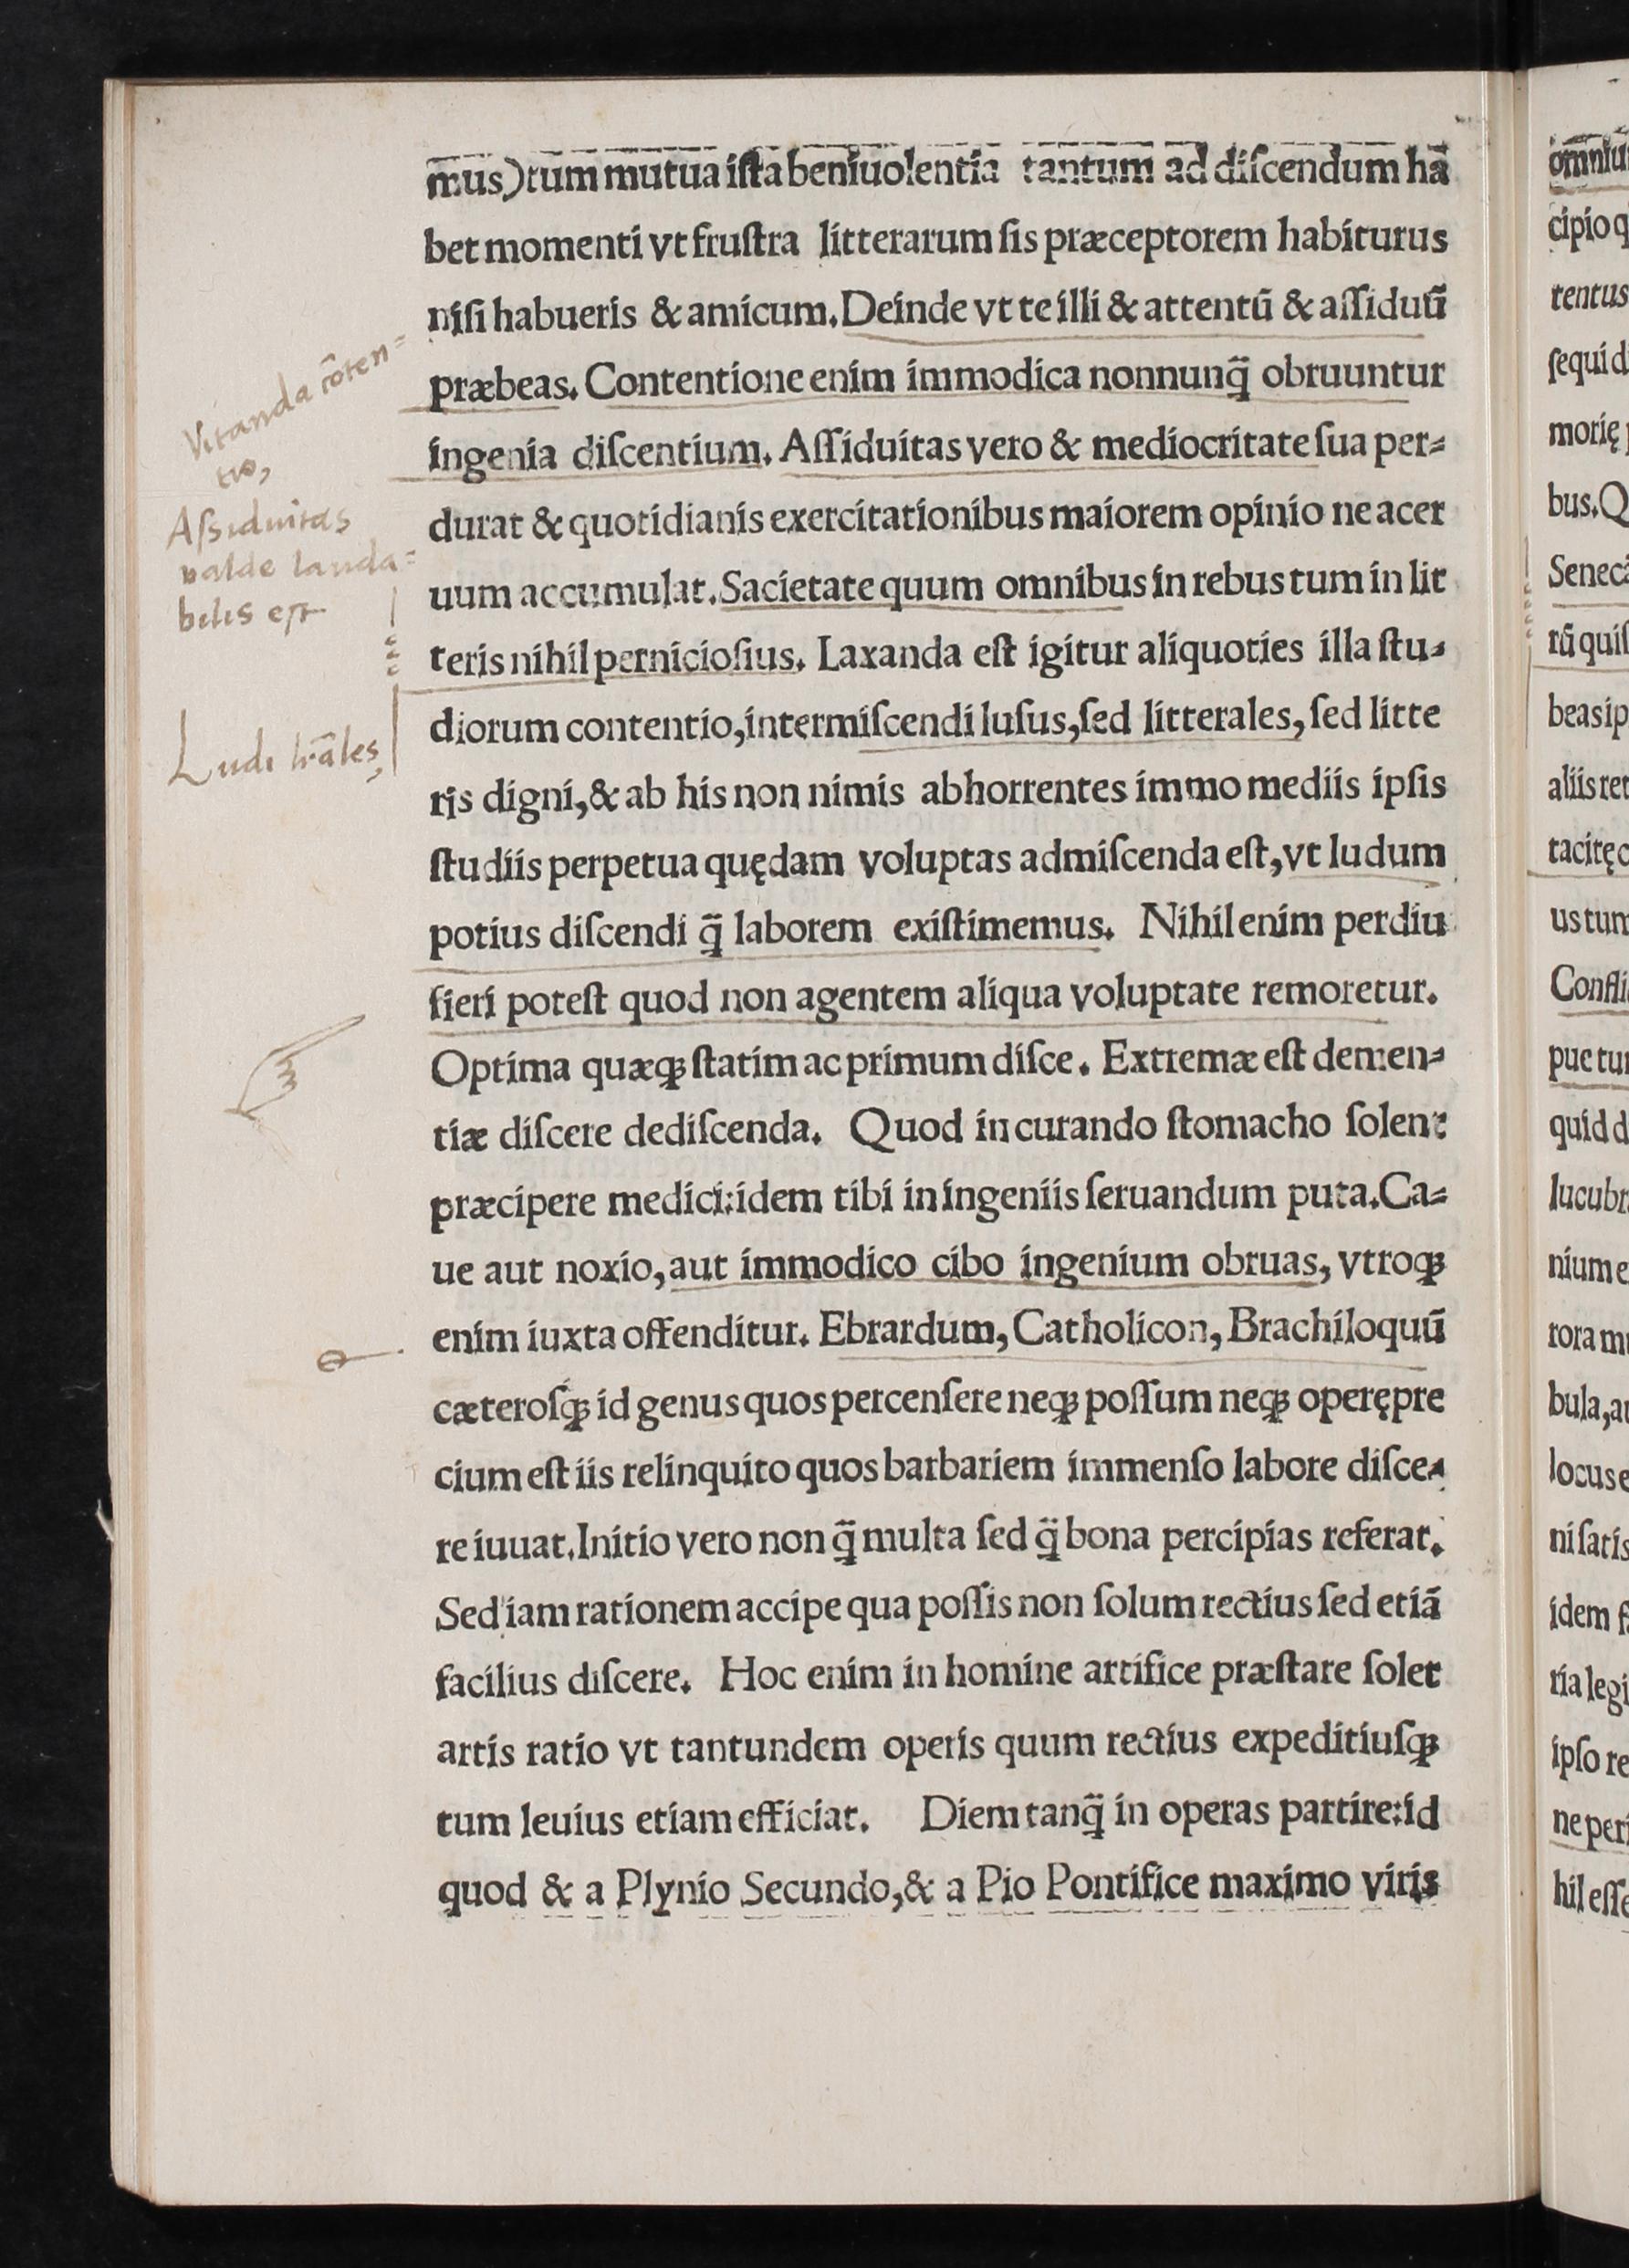 m̄us)tum mutua iſta beniuolentia tantum ad diſcendum hā
bet momenti vt fruſtra litterarum ſis præceptorem habiturus
niſi habueris & amicum. Deinde vt te illi & attentū & aſſiduū
præbeas. Contentione enim immodica nonnunq̃ obruuntur
ingenia diſcentium. Aſſiduitas vero & mediocritate ſua per⸗
durat & quotidianis exercitationibus maiorem opinio ne acer
uum accumulat. Sacietate quum omnibus in rebus tum in lit
teris nihil pernicioſius. Laxanda eſt igitur aliquoties illa ſtu⸗
diorum contentio, intermiſcendi luſus, ſed litterales, ſed litte
ris digni, & ab his non nimis abhorrentes immo mediis ipſis
ſtudiis perpetua quędam voluptas admiſcenda eſt, vt ludum
potius diſcendi q̃ laborem exiſtimemus. Nihil enim perdiu
fieri poteſt quod non agentem aliqua voluptate remoretur.
Optima quæqꝫ ſtatim ac primum diſce. Extremæ eſt demen⸗
tiæ diſcere dediſcenda. Quod in curando ſtomacho ſolent
præcipere medici: idem tibi in ingeniis ſeruandum puta. Ca⸗
ue aut noxio, aut immodico cibo ingenium obruas, vtroqꝫ
enim iuxta offenditur. Ebrardum, Catholicon, Brachiloquū
cæteroſqꝫ id genus quos percenſere neqꝫ poſſum neqꝫ operępre
cium eſt iis relinquito quos barbariem immenſo labore diſce⸗
re iuuat. Initio vero non q̃ multa ſed q̃ bona percipias referat.
Sed iam rationem accipe qua poſſis non ſolum rectius ſed etiā
facilius diſcere. Hoc enim in homine artifice præſtare ſolet
artis ratio vt tantundem operis quum rectius expeditiuſqꝫ
tum leuius etiam efficiat. Diem tanq̃ in operas partire: id
quod & a Plynio Secundo, & a Pio Pontifice maximo viris
Vitanda cōten⸗
tio,
Aſsiduitas
valde lauda⸗
bilis eſt
Ludi lr̄ales,
omniū
cipio q
tentus
ſequi d
morię
bus. Q
Senecā
rū quiſ
beas ip
aliis ret
tacitę c
us tum
Confli
puc tur
quid d
lucubr
nium e
rora m
bula, au
locus e
ni ſatis
idem f
ria legi
ipſo re
ne peri
hil eſſe